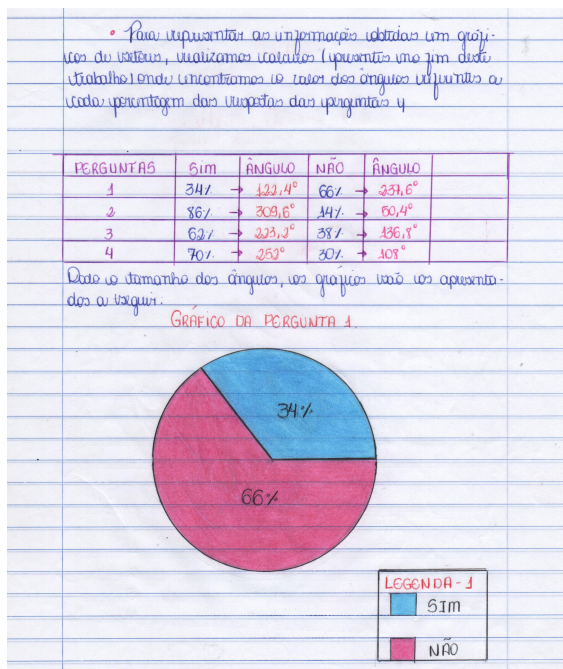 • Para representar as informações obtidas em gráfi-
cos de setores, realizamos calculos (presentes no fim deste
trabalho) onde encontramos o valor dos ângulos referentes a
cada porcentagem das respostas das perguntas
PERGUNTAS Sim ÂNGULO NÃO ÂNGULO
1 34% → 122,4° 66% → 237,6°
2 86% → 309,6° 14% → 50,4°
3 62% → 223,2° 38% → 136,8°
4 70% → 252° 30% → 108°
Dado o tamanho dos ângulos, os gráficos vão os apresenta-
dos a seguir.
GRÁFICO DA PERGUNTA 1.
34%
66%
LEGENDA - 1
SIM
NÃO